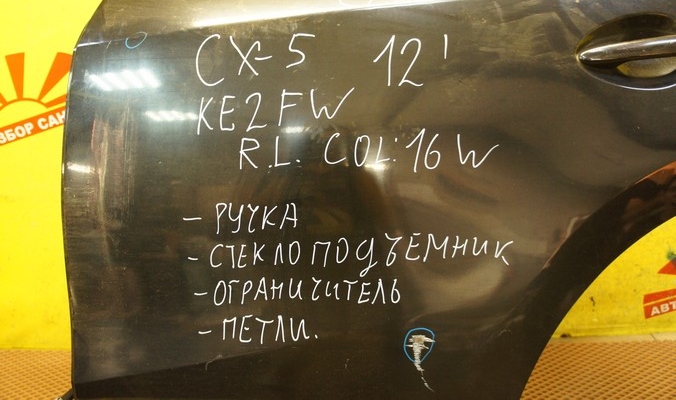 CX-5 12'
KE2FW
R.L. COL:16W
- РУЧКА
- СТЕКЛОПОДЪЕМНИК
- ОГРАНИЧИТЕЛЬ
- ПЕТЛИ.
ЗБОР САН
АВТ